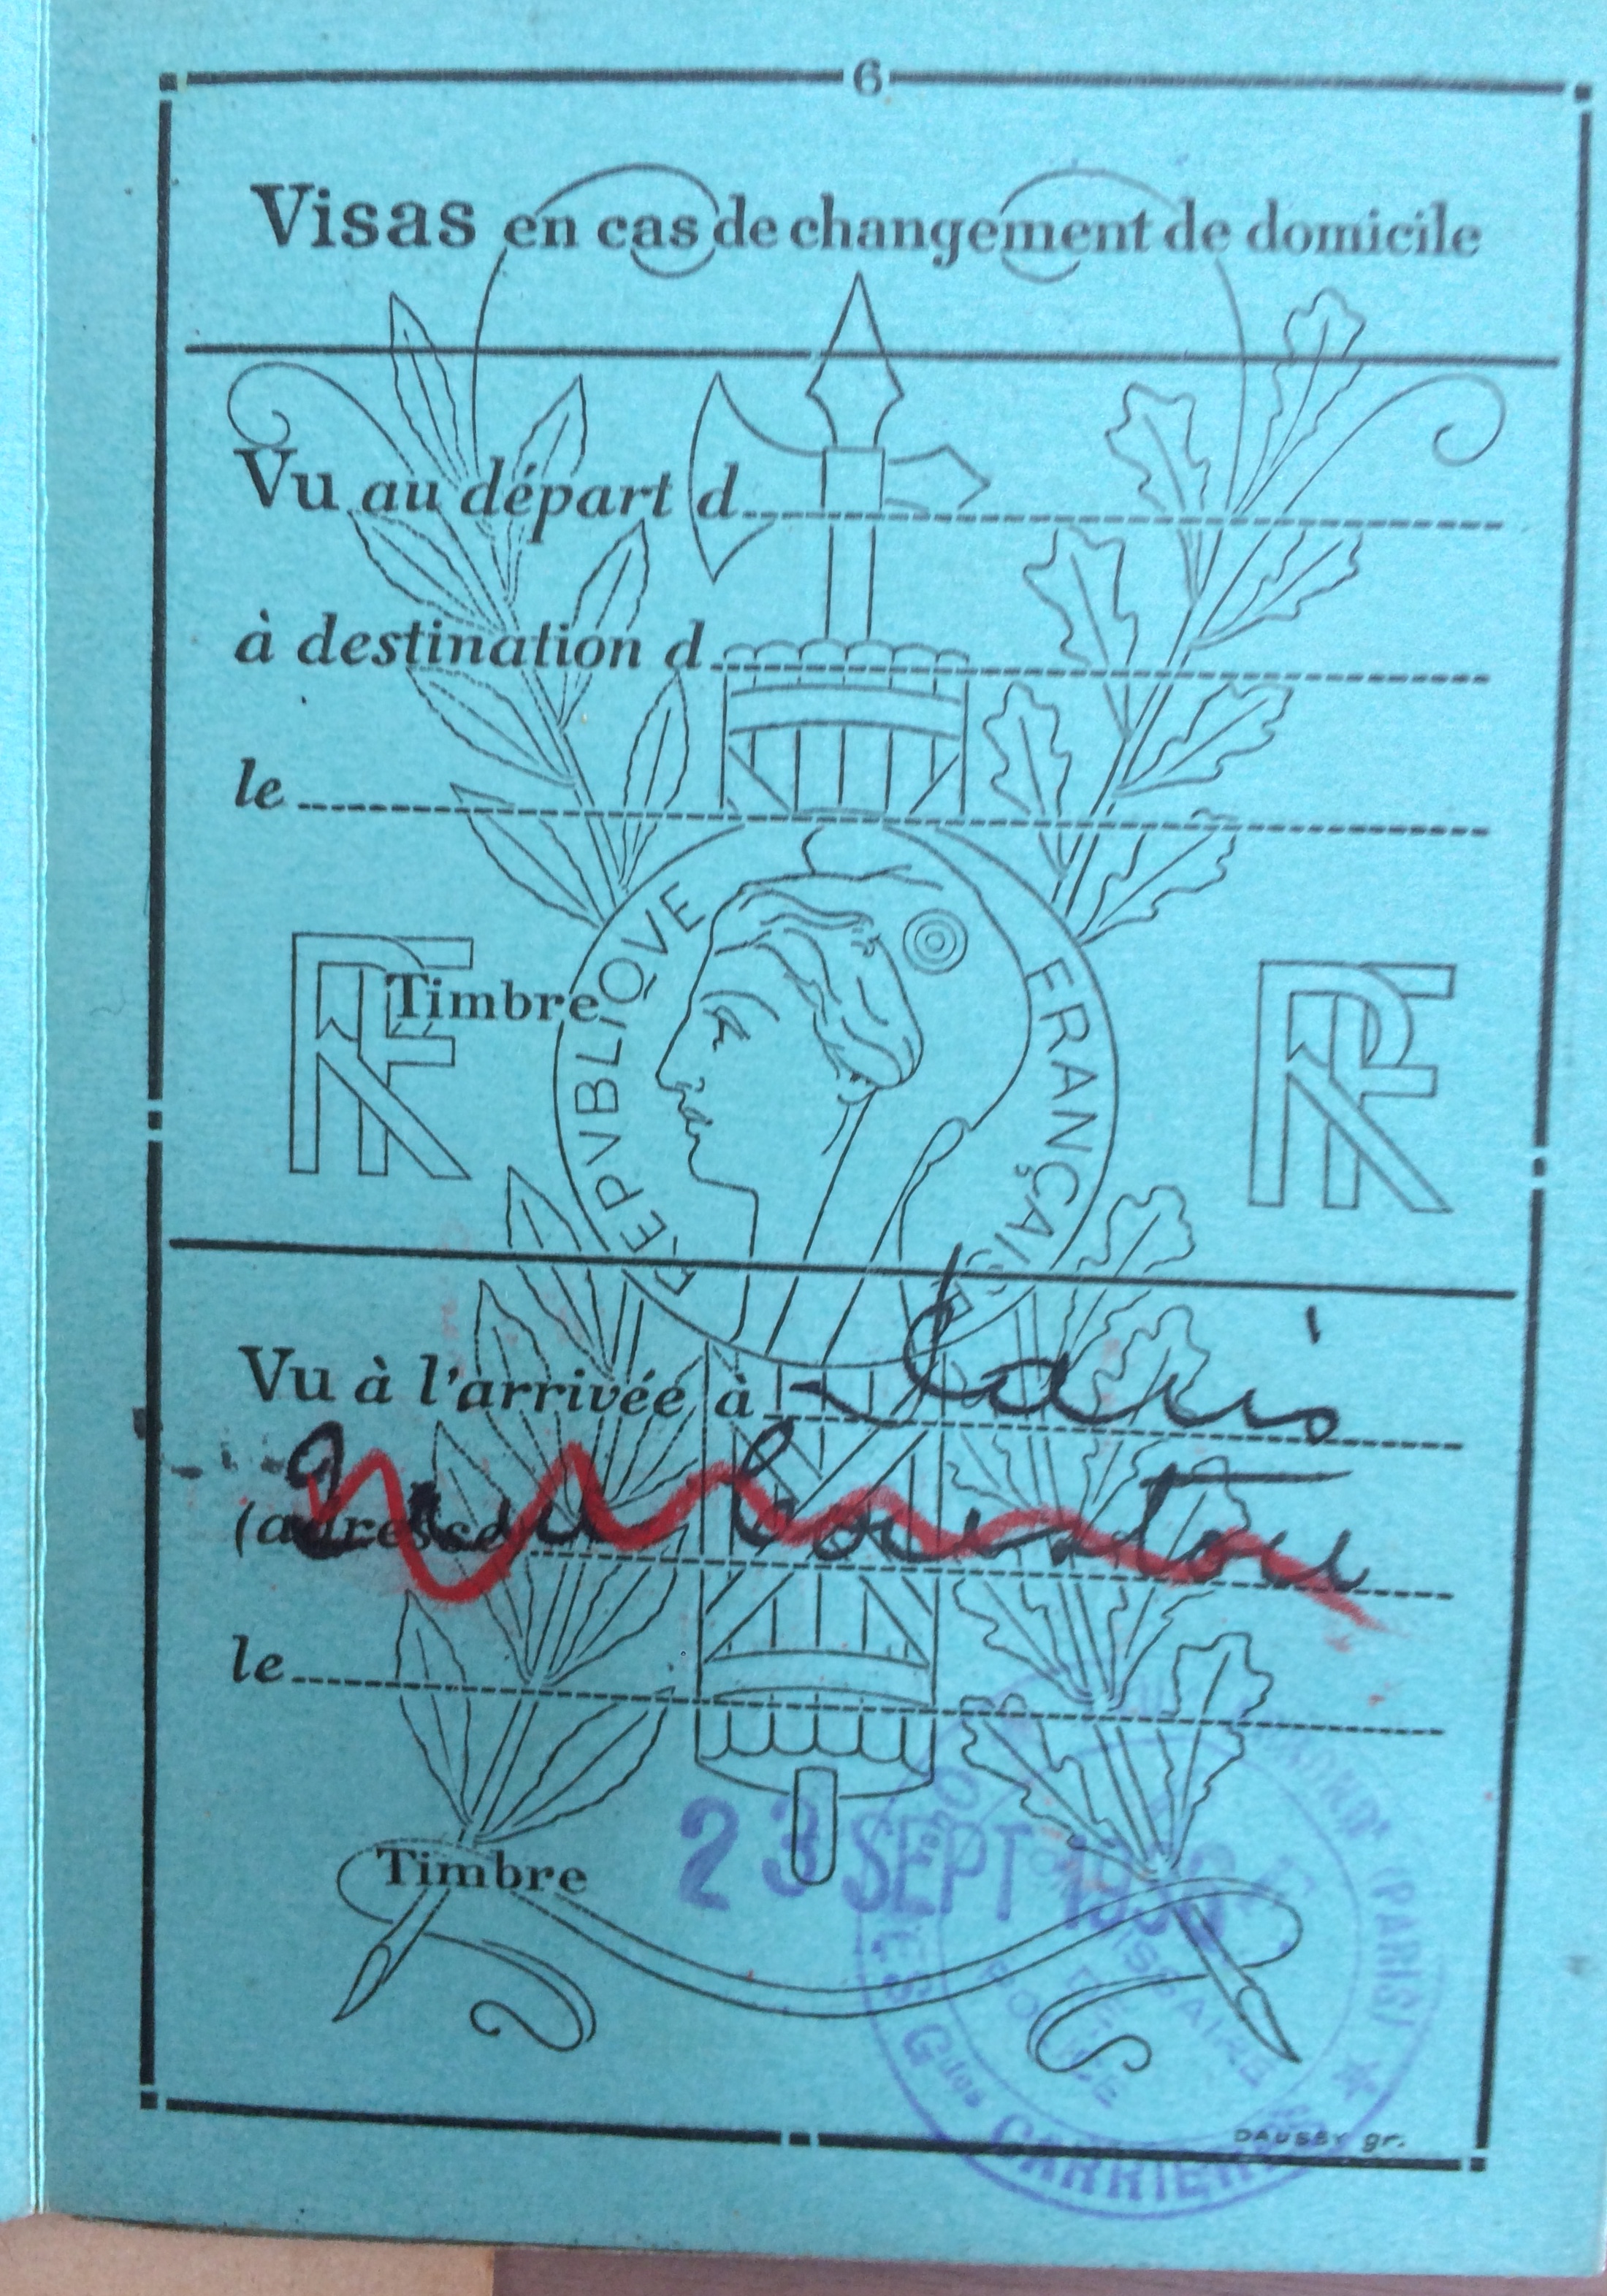 6
Visas en cas de changement de domicile
Vu au départ d
à destination d
le
RF
Timbre
REPVBLIQVE FRANÇAISE
RF
Vu à l'arrivée à Paris
(adresse)
le
Timbre
23 SEPT
COMMISSAIRE DE POLICE
(PARIS)
Gdes CARRIERES
DAUSSY gr.